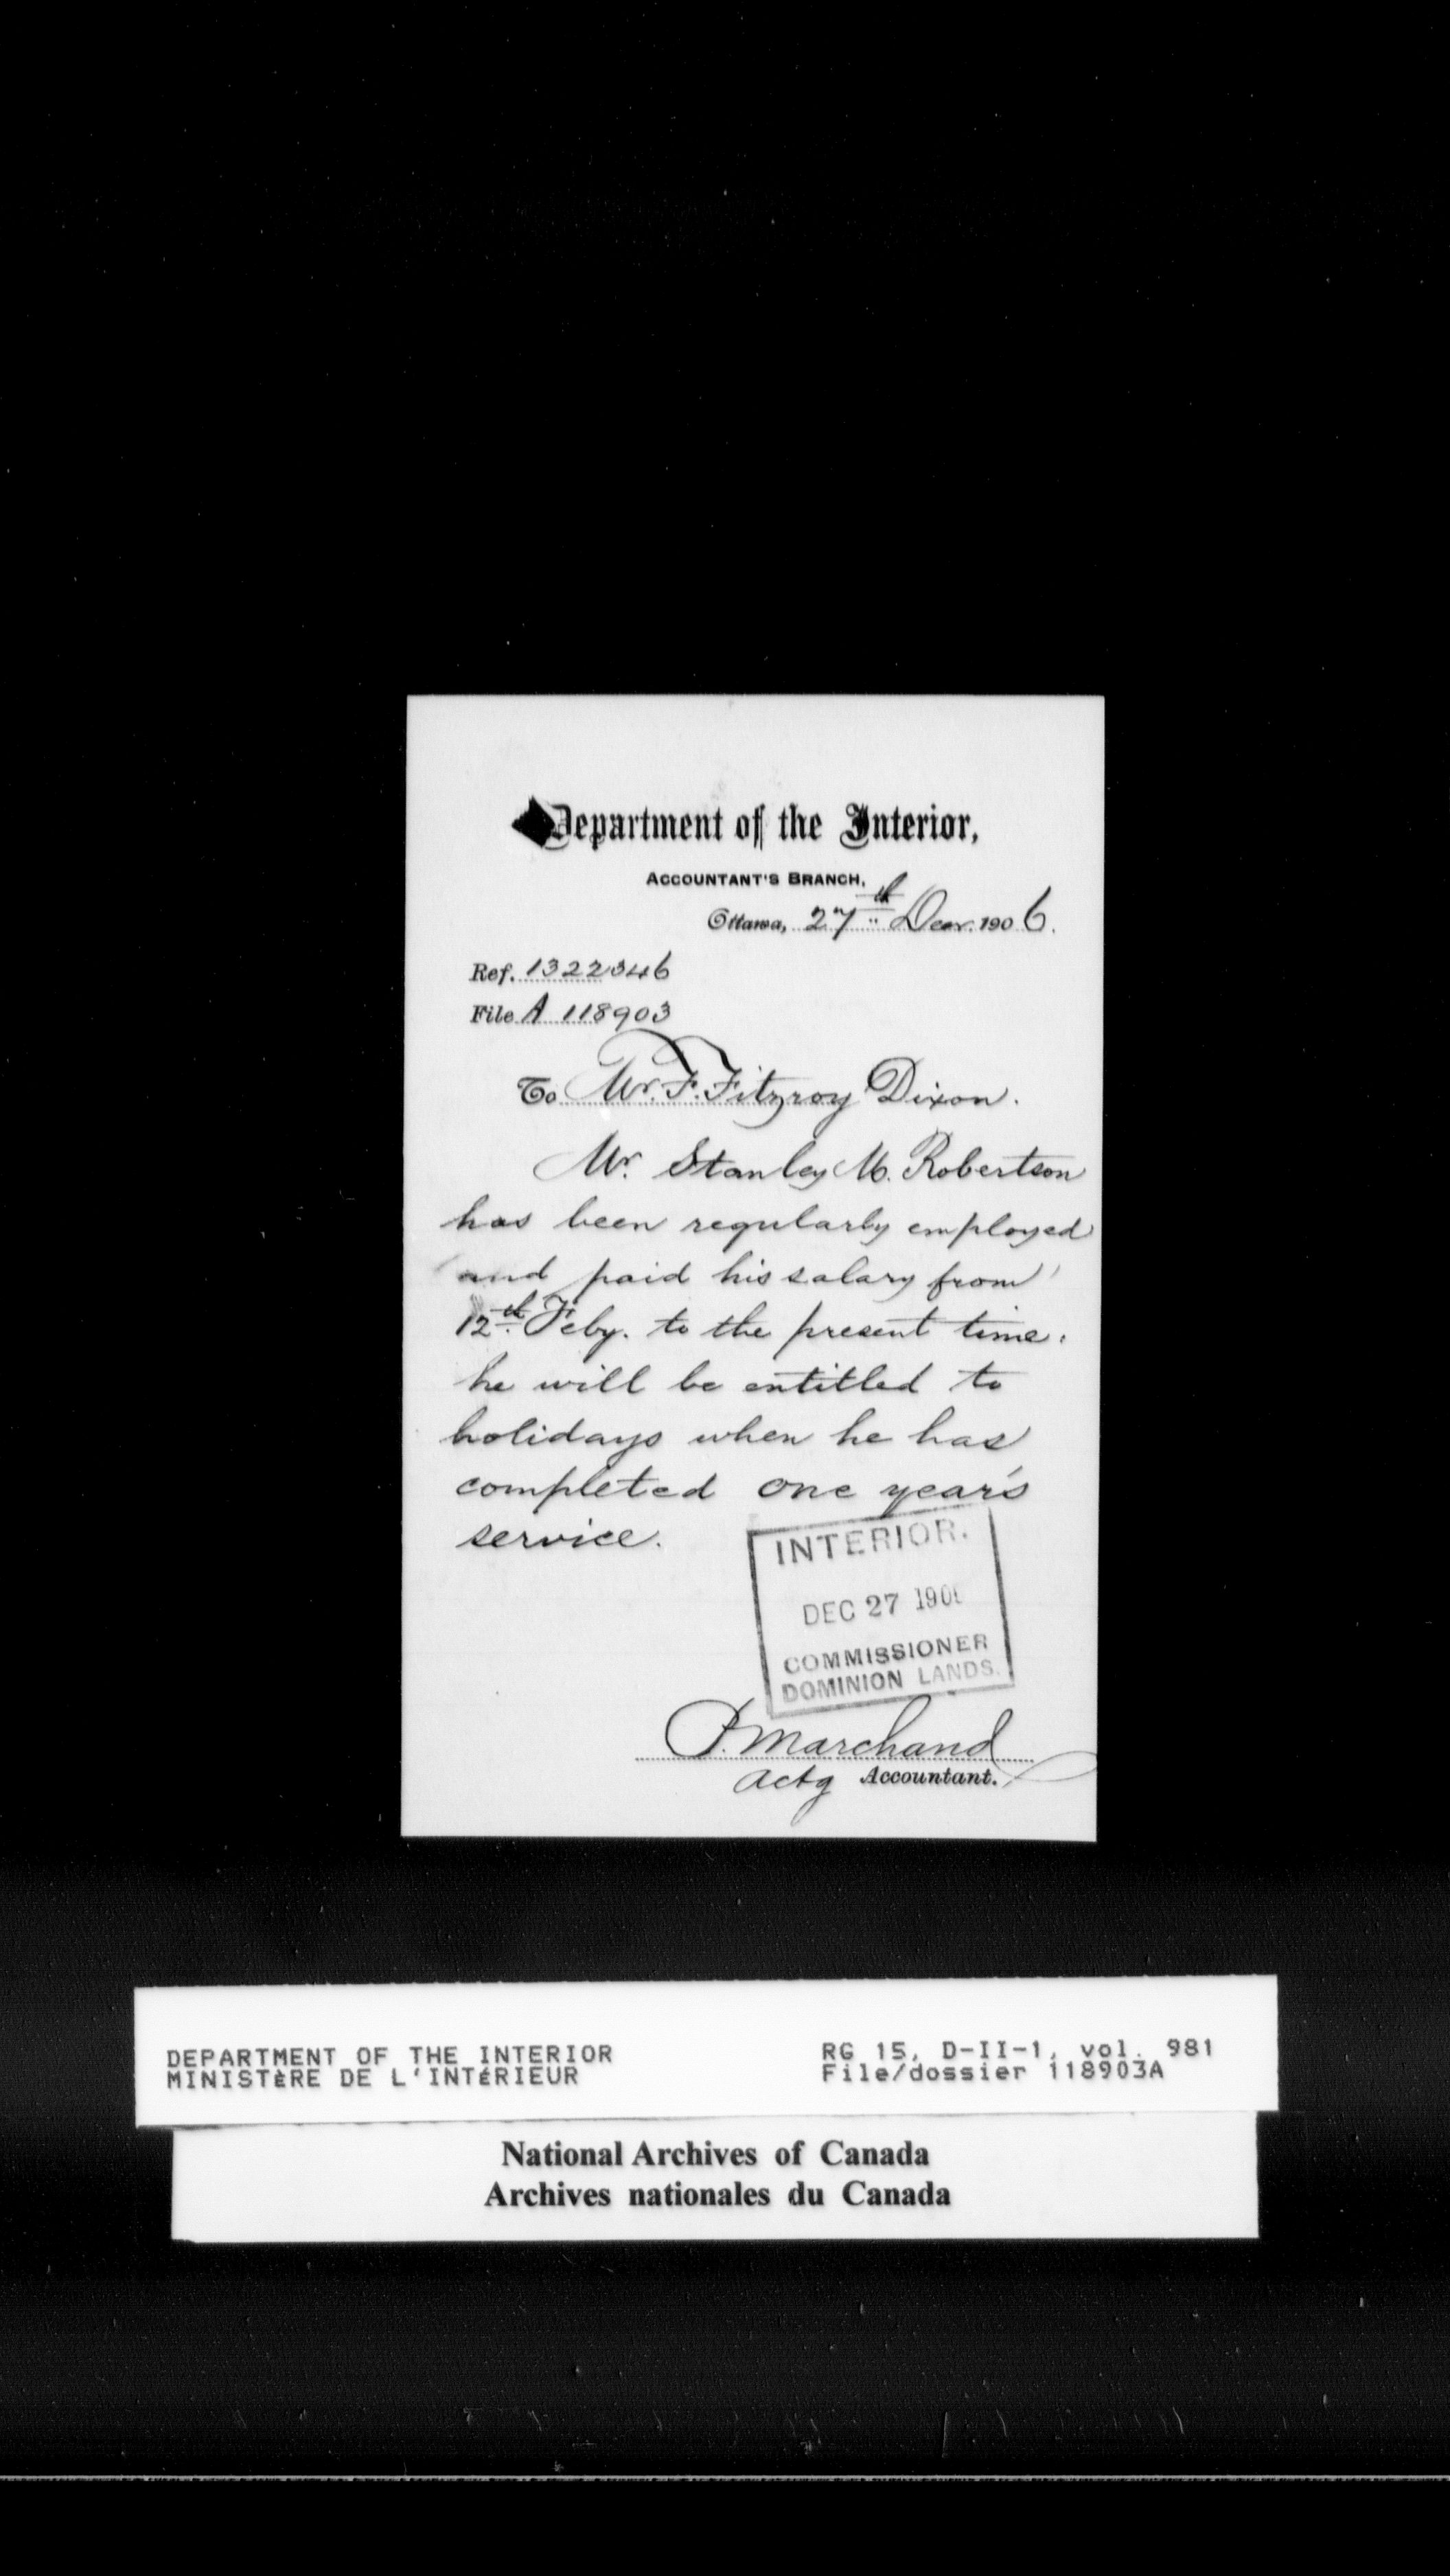 Department of the Interior,
ACCOUNTANT'S BRANCH,
Ottawa, 27th Decr. 1906.
Ref. 1322346
File A 118903
To Mr. F. Fitzroy Dixon.
Mr. Stanley M. Robertson
has been regularly employed
and paid his salary from
12th Feby. to the present time.
he will be entitled to
holidays when he has
completed one year's
service.
INTERIOR.
DEC 27 1906
COMMISSIONER
DOMINION LANDS.
P. Marchand
Actg Accountant.
DEPARTMENT OF THE INTERIOR RG 15, D-II-1, vol. 981
MINISTÈRE DE L'INTÉRIEUR File/dossier 118903A
National Archives of Canada
Archives nationales du Canada